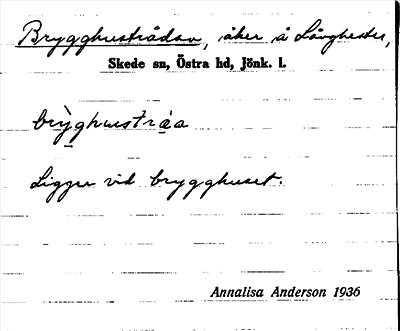 Brygghusträdan, åker å Långhester,
Skede sn, Östra hd, Jönk. l.
brỳghusträa
Ligger vid brygghuset.
Annalisa Anderson 1936